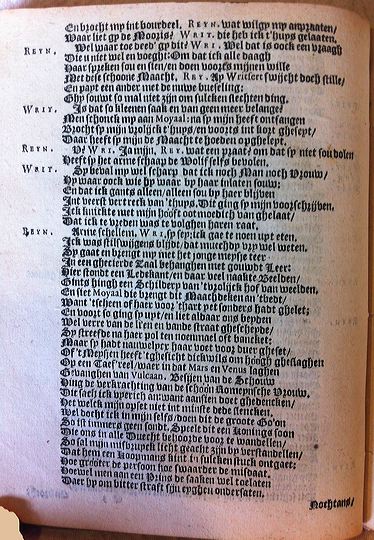 En brocht my int bourdeel. REYN. wat wilgy my anpraaten/
Waar liet gy de Moor? WRIT. die heb ick t'huys gelaaten.
REYN. Wel waar toe deed' gy dit? WRI. Wel dat is oock een vraagh
Die u niet wel en voeght: Om dat ick alle daagh
Haar spreken sou en sien/ en doen voorts mijnen wille
Met dese schoone Maacht. REY. Ay Writsert swijcht doch stille/
En payt een ander met die nuwe bueseling:
Ghy souwt so mal niet zijn om sulcken slechten ding.
WRIT. Is dat so kleenen saak en van geen meer belange?
Men schonck my aan Moyaal: na sy mijn heeft ontfangen
Brocht sy mijn vrolijck t'huys/ en voorts int kort ghesept/
Daar heeft sy mijn de Maacht te hoeden opgheleyt.
REYN. U? WRI. Ja mijn. REY. wat een praat! om dat sy niet sou dolen
Heeft sy het arme schaap de Wolf selfs bevolen.
WRIT. Sy beval my wel scharp dat ick noch Man noch Vrouw/
Hy waar oock wie hy waar by haar inlaten souw:
En dat ick gants alleen/ alleen sou by haar blijven
Int veerst vertreck van 't huys. Dit ging sy mijn voorschrijven.
Ick knickte met mijn hooft ootmoedich van ghelaat/
Dat ick te vreden was te volghen haren raat.
REYN. Arme schellem. WRI. sy sey: ick gae te noen uyt eten,
Ick was stilswijgens blijdt/ dat mueechdy vry wel weten.
Sy gaat en brengt my met het jonge meysje teer
In een ghecierde Zaal behanghen met gouwde Leer:
Hier stondt een Ledekant/ en daar veel naakte Beelden/
Gints hingh een Schildery van 't vrolijck hof van weelden.
En siet Moyaal die brengt dit Maachdeken an 't bedt/
Want 'tschen of haar voor 't hart yet sonders hadt ghelet;
En voort so ging sy uyt/ en liet aldaar ons beyden
Wel verre van de li'en en vande straat ghescheyde/
Sy streefde na haer pol ten noenmael oft bancket:
Maar sy hadt nauwelycx haar voet voor duer gheset/
Of 't Meysjen heeft 't ghesicht dickwils om hoogh gheslaghen
Op een Taef'reel/ waer in dat Mars en Venus laghen
Gevanghen van Vulcaan. Besijen van de Schouw
Hing de verkrachting van de schoon Romeynsche Vrouw.
Dit saef ick vyerich an: want aansten doet ghedencken/
Het welck mijn opset niet int minste dede slencken.
Wel docht ick in mijn selfs/ doen dit de groote Go'on
So ist immers geen sondt. Speelt dit een Konings soon
Die ons in alle Duecht behoorde voor te wandelen/
So sal mijn misbruyck licht geacht zijn by verstandelen/
Dat hem een Koopmans kint in sulcken stuck ontgaet:
Hoe grooter de persoon hoe swaarder de misdaat.
Hoewel men aan een Prins de saaken wel toelaten
Daer hy om bitter straft sijn eyghen ondersaten.
Nochtans/